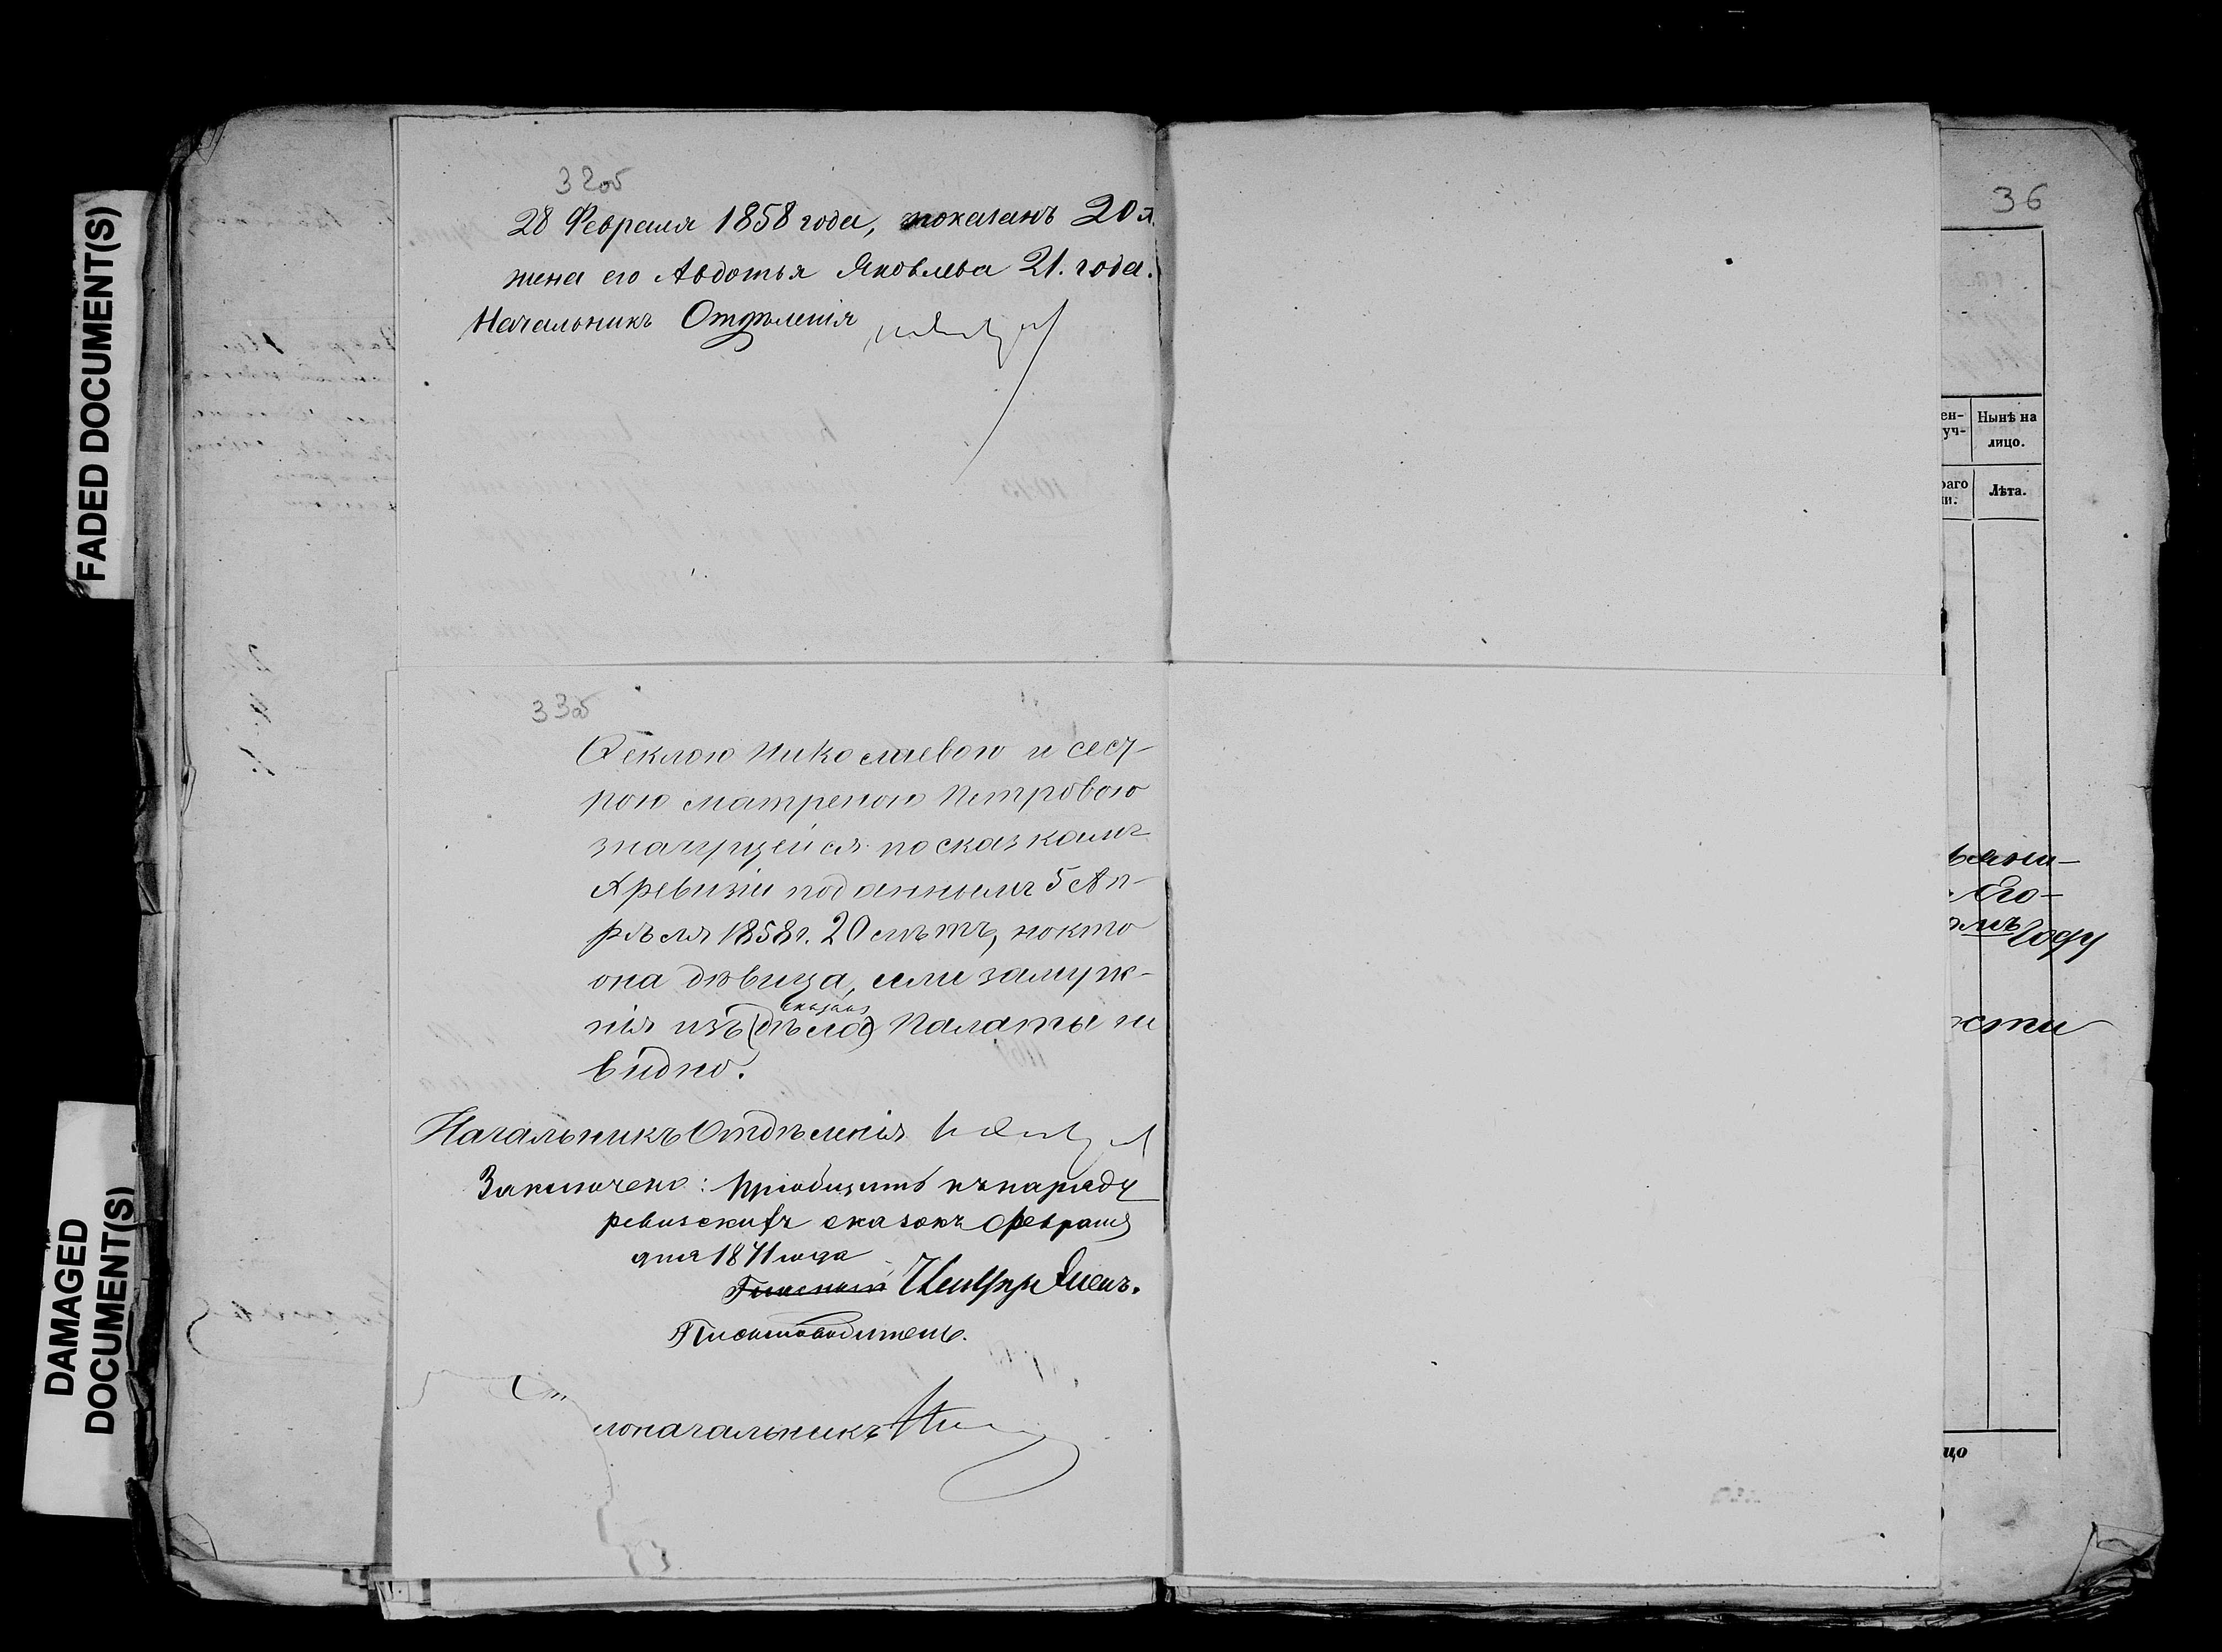 FADED DOCUMENT(S)
DAMAGED
DOCUMENT(S)
32об
28 Февраля 1858 года, показанъ 20 л.
жена его Авдотья Яковлева 21. года.
Начальникъ Отдѣленія
33об
Феклою Николаевою и сест-
рою Матреною Петровою
значущейся по сказкамъ
X ревизіи поданнымъ 5 Ап-
рѣля 1858 г. 20 лѣтъ, но кто
она дѣвица, или замуж-
сказокъ
няя изъ (дѣла) Палаты не
видно.
Начальникъ Отдѣленія
Заключено: Пріобщить къ наряду
ревизскихъ сказокъ Февраля
дня 1871 года
Письмоводитель.
лоначальникъ
36
ен-
уч-
Нынѣ на
лицо.
раго
и.
Лѣта.
Его-
мъ году
ости
цо